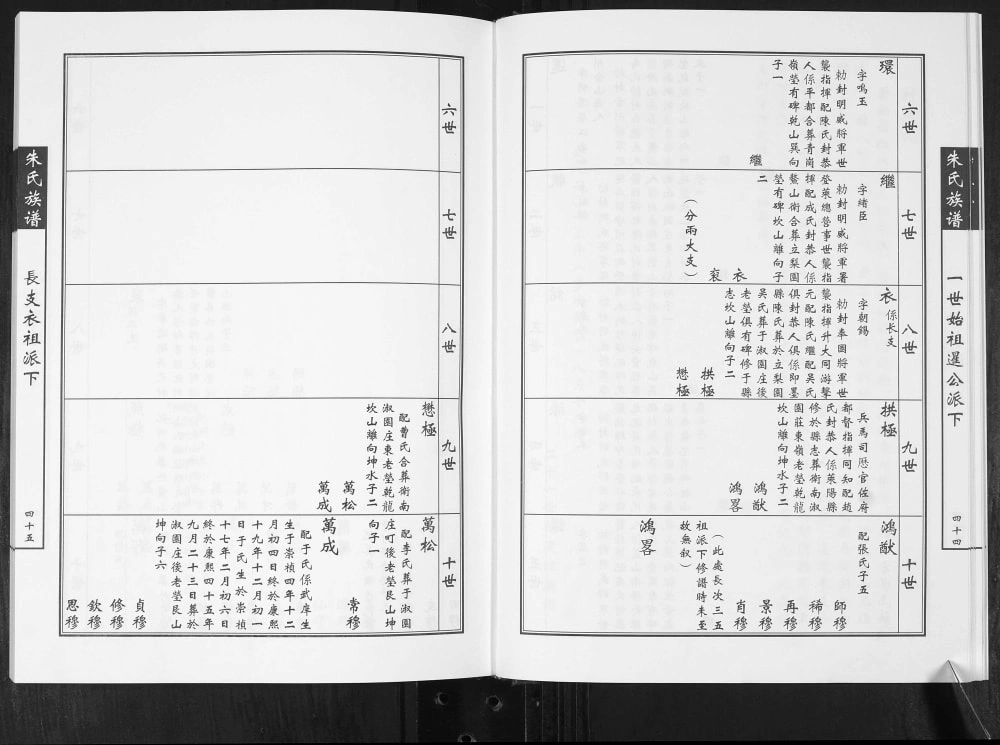 朱氏族谱
一世始祖暹公派下
四十四
六世
環
字鳴玉
勅封明威將軍世
襲指揮配陳氏封恭
人係平都合葬青崗
嶺塋有碑乾山巽向
子一
繼
七世
繼
字緒臣
勅封明威將軍署
登萊總營事世襲指
揮配成氏封恭人係
鰲山衛合葬立梨園
塋有碑坎山離向子
二
衣
衮
（分兩大支）
八世
衣 係長支
字朝錫
勅封奉國將軍世
襲指揮升大同游擊
元配陳氏繼配吳氏
俱封恭人俱係即墨
縣陳氏葬於立梨園
吳氏葬于淑園庄後
老塋俱有碑修于縣
志坎山離向子二
拱極
懋極
九世
拱極
兵馬司歷官佐府
都督指揮同知配趙
氏封恭人係萊陽縣
修於縣志葬衛南淑
園莊東嶺老塋乾龍
坎山離向坤水子二
鴻猷
鴻畧
十世
鴻猷
配張氏子五
師穆
稀穆
再穆
景穆
肖穆
（此處長次三五
祖派下修譜時未至
故無叙）
鴻畧
朱氏族谱
長支衣祖派下
四十五
六世
七世
八世
九世
懋極
配曹氏合葬衛南
淑園庄東老塋乾龍
坎山離向坤水子二
萬松
萬成
十世
萬松
配李氏葬于淑園
庄町後老塋艮山坤
向子一
常穆
萬成
配于氏係武庠生
生于崇禎四年十二
月初四日終於康熙
十九年十二月初一
日于氏生於崇禎
十七年二月初六日
終於康熙四十五年
九月二十三日葬於
淑園庄後老塋艮山
坤向子六
貞穆
修穆
欽穆
思穆